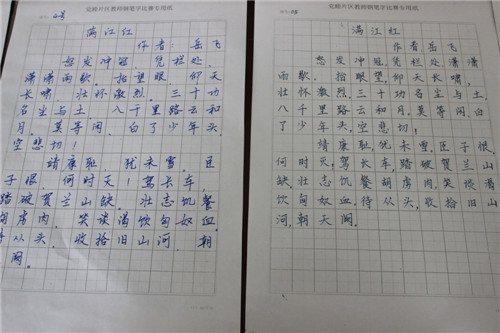 党睦片区教师钢笔字比赛专用纸
4号
满江红
作者:岳飞
怒发冲冠,凭栏处、
潇潇雨歇。抬望眼,仰天
长啸,壮怀激烈。三十功
名尘与土,八千里路云和
月。莫等闲、白了少年头,
空悲切!
靖康耻,犹未雪。臣
子恨,何时灭!驾长车,
踏破贺兰山缺。壮志饥餐
胡虏肉,笑谈渴饮匈奴血。
从头、收拾旧山河,朝
阙。
党睦片区教师钢笔字比赛专用纸
满江红
作者岳飞
怒发冲冠,凭栏处潇潇
雨歇。抬望眼仰天长啸,
壮怀激烈。三十功名尘与土,
八千里路云和月。莫等闲白
了少年头,空悲切!
靖康耻,犹未雪臣子恨,
何时灭!驾长车,踏破贺兰山
缺。壮志饥餐胡虏肉,笑谈渴
饮匈奴血。待从头,收拾旧山
河,朝天阙。